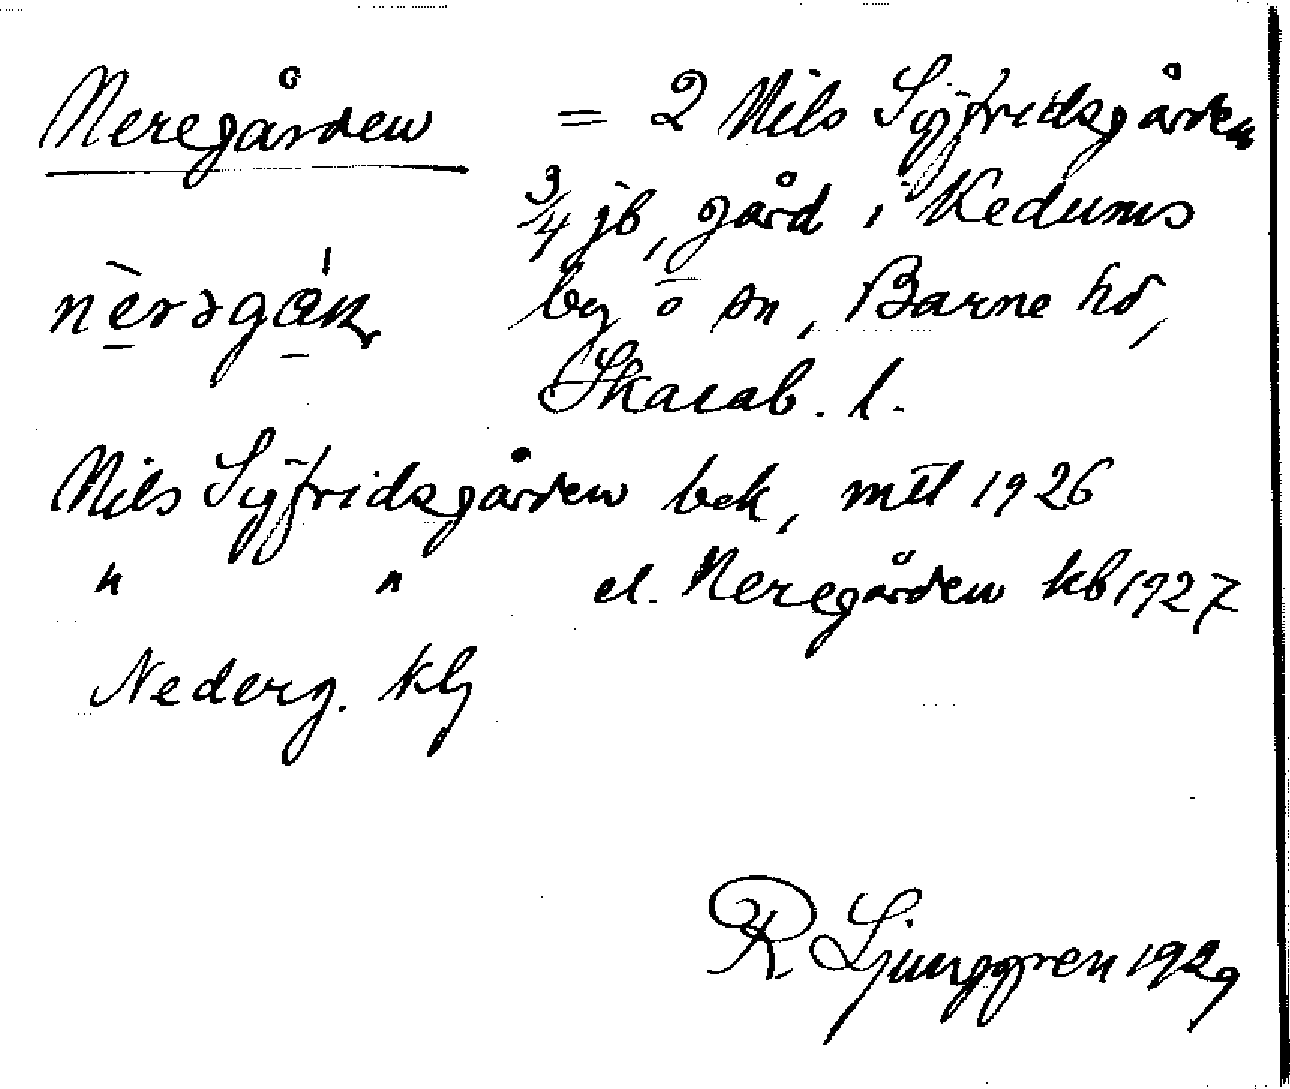 Neregården = 2 Nils Syfridsgården
3/4 jb, gård i Kedums
by o sn, Barne hd,
Skarab. l.
Nils Syfridsgården bek, mtl 1926
" " el. Neregården kb 1927
Nederg. klg
R Ljunggren 1929